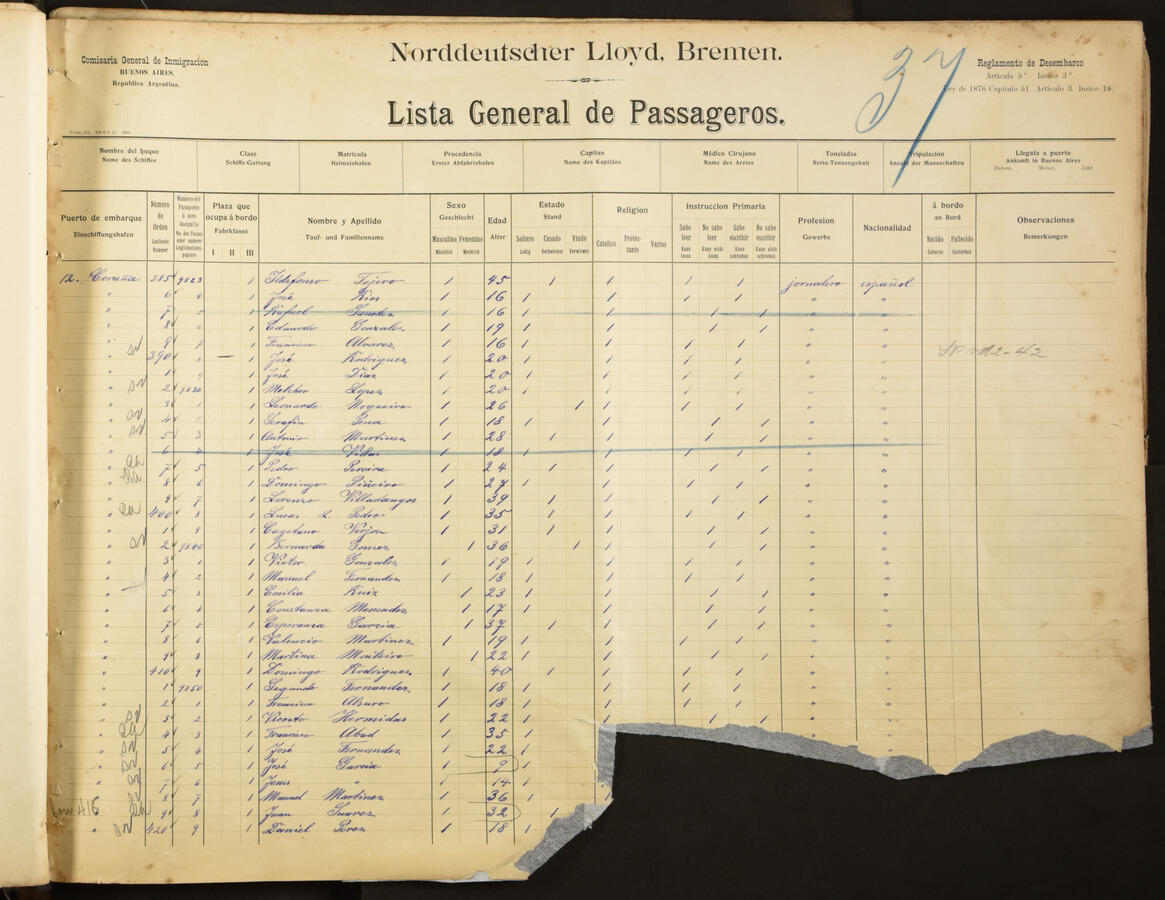 Comisaria General de Inmigracion
BUENOS AIRES.
Republica Argentina.
Norddeutscher Lloyd, Bremen.
Lista General de Passageros.
37
Reglamento de Desembarco
Articula 5º. Insico 3º.
Ley de 1876 Capitulo 51. Articulo 3. Insico 14.
Nombre del buque
Name des Schiffes
Clase
Schiffs-Gattung
Matricula
Heimatshafen
Procedencia
Erster Abfahrtshafen
Capitan
Name des Kapitäns
Médico Cirujano
Name des Arztes
Toneladas
Netto-Tonnengehalt
Tripulacion
Anzahl der Mannschaften
Llegata a puerto
Ankunft in Buenos Aires
Datum, Monat, Jahr
Puerto de embarque
Einschiffungshafen
Número de Orden
Laufende Nummer
Plaza que ocupa á bordo
Fahrklasse
I II III
Nombre y Apellido
Tauf- und Familienname
Sexo
Geschlecht
Masculino Femenino
Männlich Weiblich
Edad
Alter
Estado
Stand
Soltero Casado Viudo
Ledig Verheiratet Verwitwet
Religion
Catolico Protestante Varios
Instruccion Primaria
Sabe leer No sabe leer Sabe escribir No sabe escribir
Kann lesen Kann nicht lesen Kann schreiben Kann nicht schreiben
Profesion
Gewerbe
Nacionalidad
á bordo
an Bord
Nacido Fallecido
Geboren Gestorben
Observaciones
Bemerkungen
12. Coruña 385 9823 1 Ildefonso Tejero 1 45 1 1 1 1 jornalero español
" 6 4 1 José Rios 1 16 1 1 1 1 " "
" 7 5 1 Rafael Sanchez 1 16 1 1 1 1 " "
" 8 6 1 Eduardo Gonzalez 1 19 1 1 1 1 " "
" 9 7 1 Francisco Alvarez 1 16 1 1 1 1 " "
" 390 1 José Rodriguez 1 20 1 1 1 1 " "
" 1 9 1 José Diaz 1 20 1 1 1 1 " "
" 2 9830 1 Melchor Lopez 1 20 1 1 1 1 " "
" 3 1 1 Leonardo Nogueira 1 26 1 1 1 1 " "
" 4 1 Serafin Pena 1 18 1 1 1 1 " "
" 5 3 1 Antonio Martinez 1 28 1 1 1 1 " "
" 6 4 1 José Villar 1 18 1 1 1 1 " "
" 7 5 1 Pedro Pereira 1 24 1 1 1 1 " "
" 8 6 1 Domingo Piñeiro 1 27 1 1 1 1 " "
" 9 7 1 Lorenzo Villadangos 1 39 1 1 1 1 " "
" 400 8 1 Lucas L. Pedro 1 35 1 1 1 1 " "
" 1 9 1 Cayetano 1 31 1 1 1 1 " "
" 2 9840 1 Bernarda Gomez 1 36 1 1 1 1 " "
" 3 1 1 Victor Gonzalez 1 19 1 1 1 1 " "
" 4 2 1 Manuel Fernandez 1 18 1 1 1 1 " "
" 5 3 1 Emilia Ruiz 1 23 1 1 1 1 " "
" 6 4 1 Constanza Menendez 1 17 1 1 1 1 " "
" 7 5 1 Esperanza Garcia 1 37 1 1 1 1 " "
" 8 6 1 Valencio Martinez 1 19 1 1 1 1 " "
" 9 8 1 Martina Monteiro 1 22 1 1 1 1 " "
" 410 9 1 Domingo Rodriguez 1 40 1 1 1 1 " "
" 1 9850 1 Segundo Fernandez 1 18 1 1 1 1 " "
" 2 1 1 Francisco 1 18 1 1 1 1 " "
" 3 2 1 Vicente Hermidas 1 22 1 1 1 1 " "
" 4 3 1 Francisco Abad 1 35 1
" 5 4 1 José Fernandez 1 22 1
" 6 5 1 José Garcia 1 9 1
" 7 6 1 Jesus " 1 14 1
" 8 7 1 Manuel Martinez 1 36 1
" 9 8 1 Juan Suarez 1 32 1
" 420 9 1 Daniel Perez 1 18 1